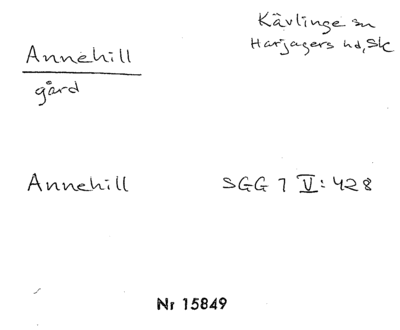 Annehill
gård
Kävlinge sn
Harjagers hd, Sk
Annehill SGG 7 V: 428
Nr 15849